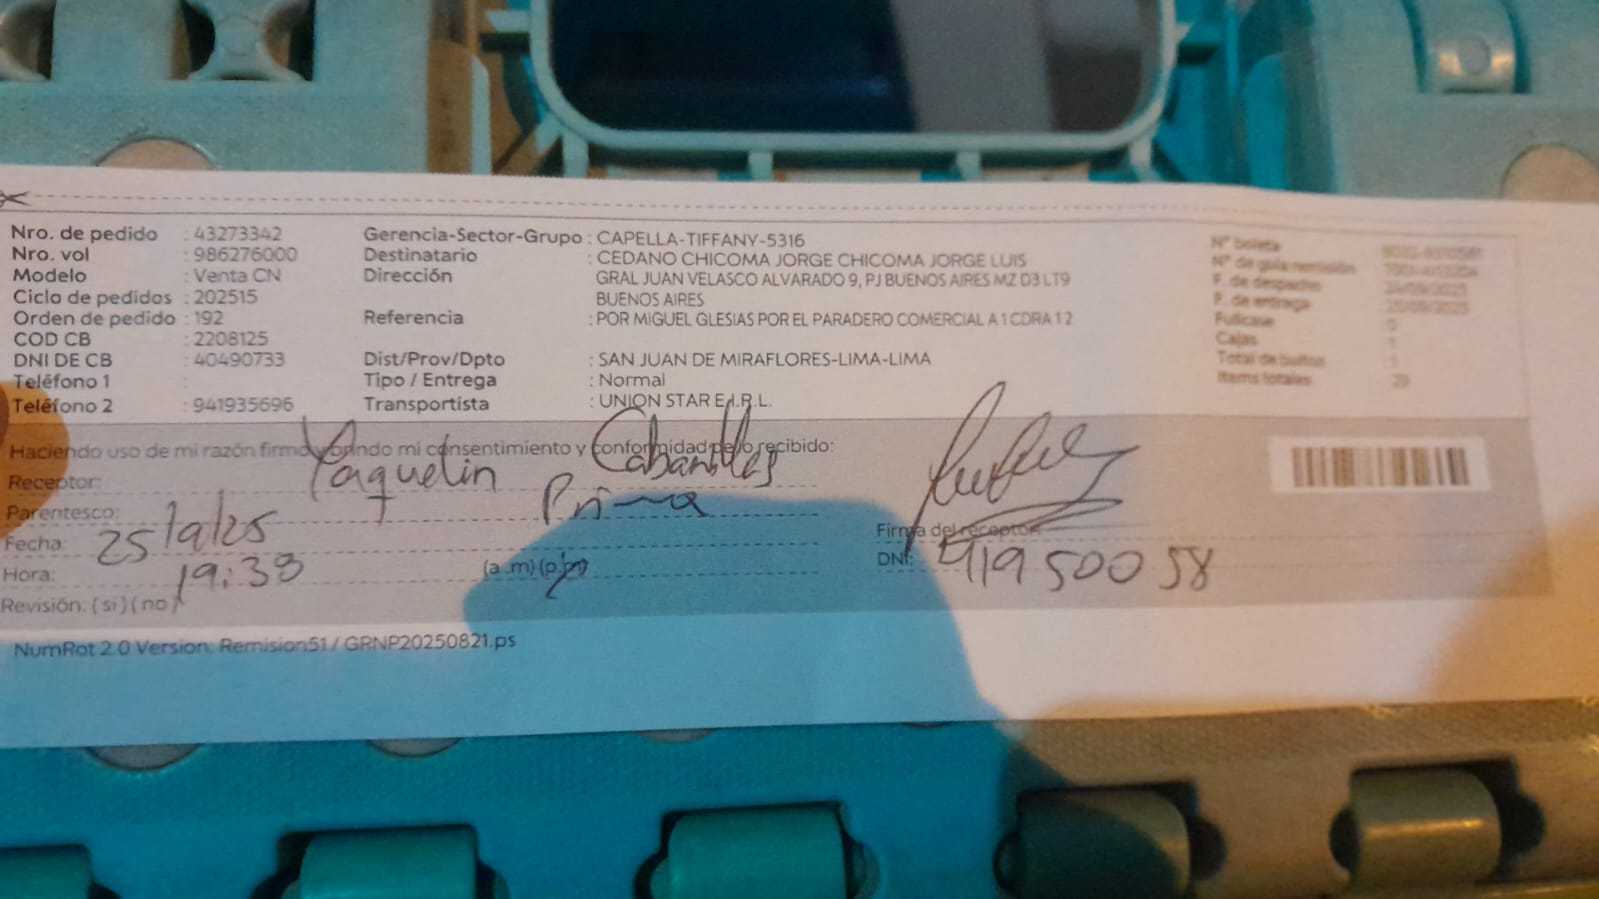 Nro. de pedido : 43273342
Nro. vol : 986276000
Modelo : Venta CN
Ciclo de pedidos : 202515
Orden de pedido : 192
COD CB : 2208125
DNI DE CB : 40490733
Teléfono 1 :
Teléfono 2 : 941935696
Gerencia-Sector-Grupo : CAPELLA-TIFFANY-5316
Destinatario : CEDANO CHICOMA JORGE CHICOMA JORGE LUIS
Dirección GRAL JUAN VELASCO ALVARADO 9, PJ BUENOS AIRES MZ D3 LT9
BUENOS AIRES
Referencia : POR MIGUEL GLESIAS POR EL PARADERO COMERCIAL A 1 CDRA 12
Dist/Prov/Dpto : SAN JUAN DE MIRAFLORES-LIMA-LIMA
Tipo / Entrega : Normal
Transportista : UNION STAR E.I.R.L.
N° boleta
N° de guía remisión
F. de despacho
F. de entrega 25/09/2025
Fullcase 0
Cajas 1
Total de bultos 1
Items totales
Haciendo uso de mi razón firmo brindo mi consentimiento y conformidad de lo recibido:
Receptor: Yaquelin Cabanillas
Parentesco: Prima
Fecha: 25/9/25
Hora: 19:38 (a .m) (p.m)
Revisión: (si) (no)
Firma del receptor
DNI:
NumRot 2.0 Version: Remision51 / GRNP20250821.ps